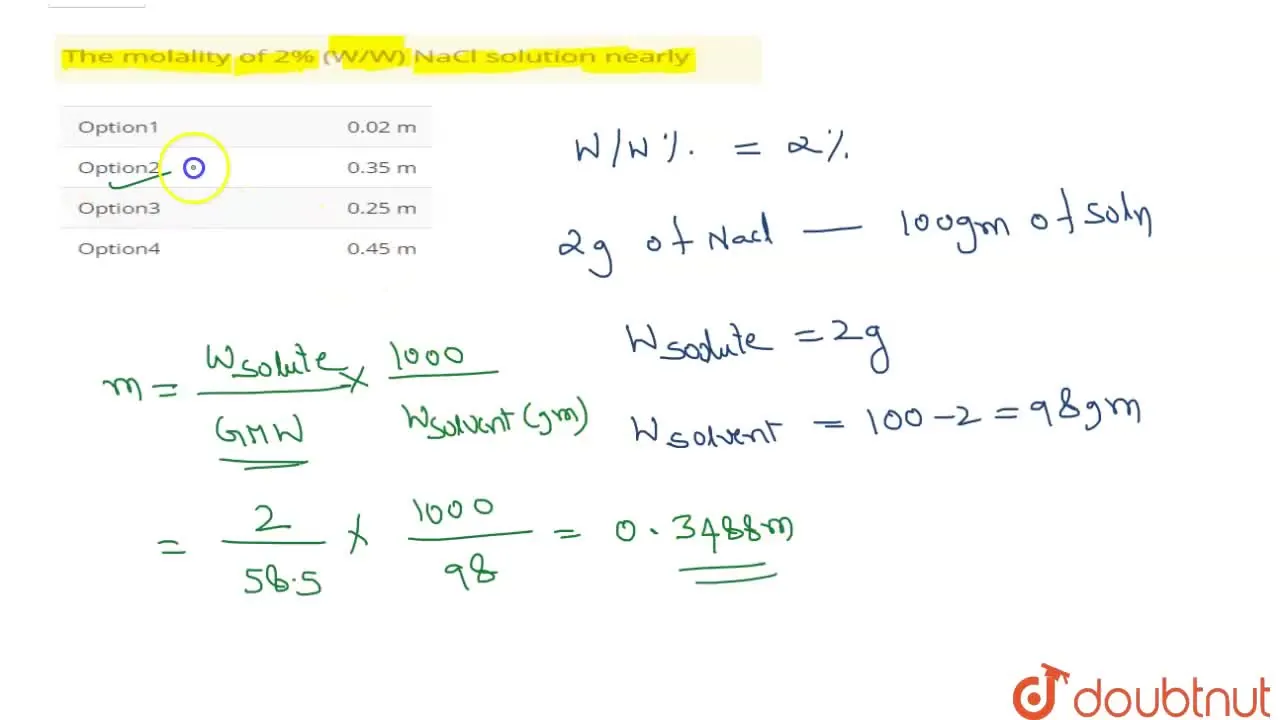 The molality of 2% (W/W) NaCl solution nearly
Option1 0.02 m
Option2 0.35 m
Option3 0.25 m
Option4 0.45 m
W/W %. = 2%.
2g of Nacl — 100gm of Soln
W solute = 2g
W solvent = 100 - 2 = 98gm
m = W solute / GMW × 1000 / W solvent (gm)
= 2 / 58.5 × 1000 / 98 = 0.3488m
doubtnut